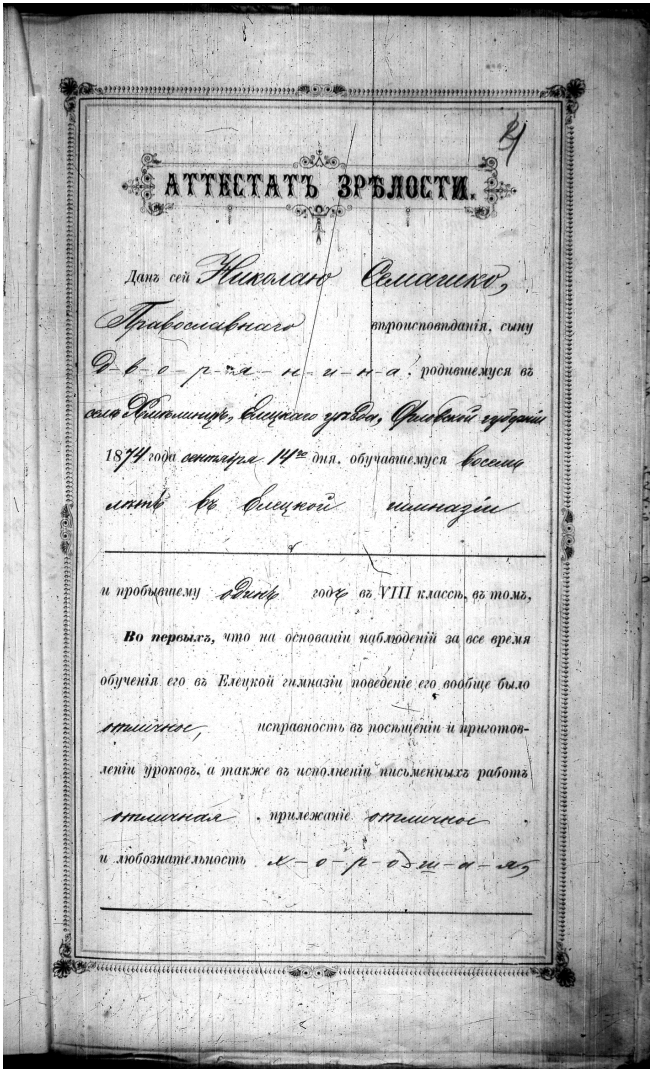 АТТЕСТАТЪ ЗРѢЛОСТИ.
Данъ сей Николаю Семашко,
Православнаго вѣроисповѣданія, сыну
д-в-о-р-я-н-и-н-а, родившемуся въ
селѣ Елецкаго уѣзда, Орловской губерніи
1874 года сентября 14го дня, обучавшемуся восемь
лѣтъ въ Елецкой гимназіи
и пробывшему одинъ годъ въ VIII классѣ, въ томъ,
Во первыхъ, что на основаніи наблюденій за все время
обученія его въ Елецкой гимназіи поведеніе его вообще было
отличное, исправность въ посѣщеніи и приготов-
леніи уроковъ, а также въ исполненіи письменныхъ работъ
отличная, прилежаніе отличное
и любознательность х-о-р-о-ш-а-я,